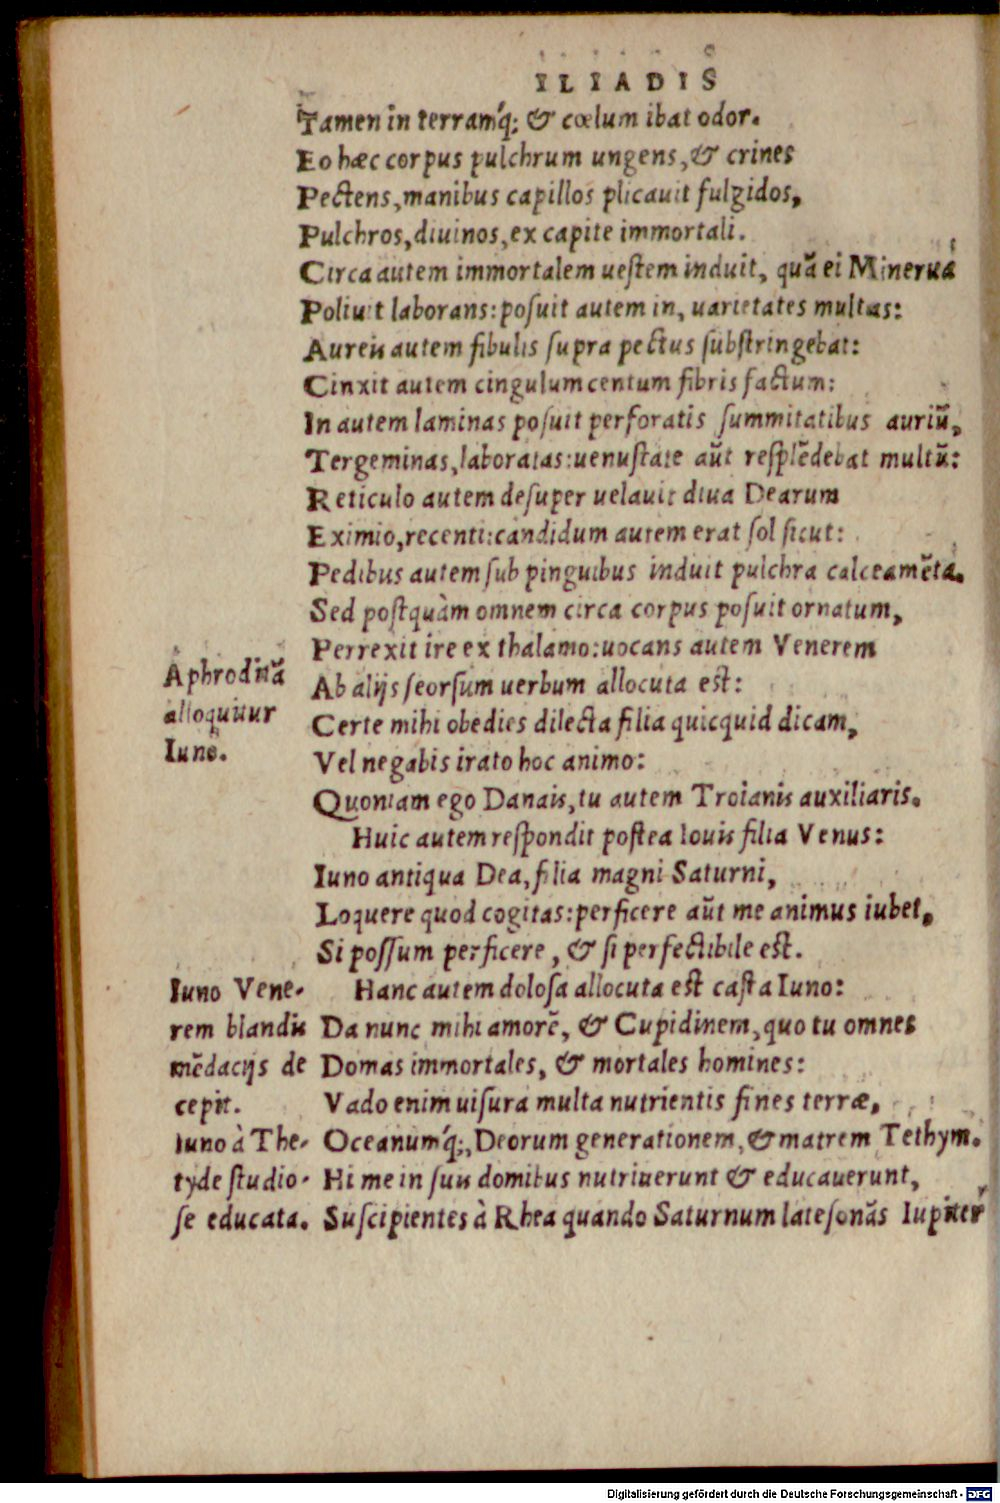 ILIADIS
Tamen in terramq́; & cœlum ibat odor.
Eo hæc corpus pulchrum ungens, & crines
Pectens, manibus capillos plicauit fulgidos,
Pulchros, diuinos, ex capite immortali.
Circa autem immortalem uestem induit, quã ei Minerua
Poliuit laborans: posuit autem in, uarietates multas:
Aureis autem fibulis supra pectus substringebat:
Cinxit autem cingulum centum fibris factum:
In autem laminas posuit perforatis summitatibus auriũ,
Tergeminas, laboratas: uenustate aũt resplẽdebat multũ:
Reticulo autem desuper uelauit diua Dearum
Eximio, recenti: candidum autem erat sol sicut:
Pedibus autem sub pinguibus induit pulchra calceamẽta.
Sed postquàm omnem circa corpus posuit ornatum,
Perrexit ire ex thalamo: uocans autem Venerem
Aphroditã
Ab alijs seorsum uerbum allocuta est:
alloquitur
Certe mihi obedies dilecta filia quicquid dicam,
Iuno.
Vel negabis irato hoc animo:
Quoniam ego Danais, tu autem Troianis auxiliaris.
Huic autem respondit postea Iouis filia Venus:
Iuno antiqua Dea, filia magni Saturni,
Loquere quod cogitas: perficere aũt me animus iubet,
Si possum perficere, & si perfectibile est.
Iuno Vene-
Hanc autem dolosa allocuta est casta Iuno:
rem blandis
Da nunc mihi amorẽ, & Cupidinem, quo tu omnes
mẽdacijs de
Domas immortales, & mortales homines:
cepit.
Vado enim uisura multa nutrientis fines terræ,
Iuno à The-
Oceanumq́;, Deorum generationem, & matrem Tethym.
tyde studio-
Hi me in suis domibus nutriuerunt & educauerunt,
se educata.
Suscipientes à Rhea quando Saturnum latesonãs Iupiter
Digitalisierung gefördert durch die Deutsche Forschungsgemeinschaft - DFG